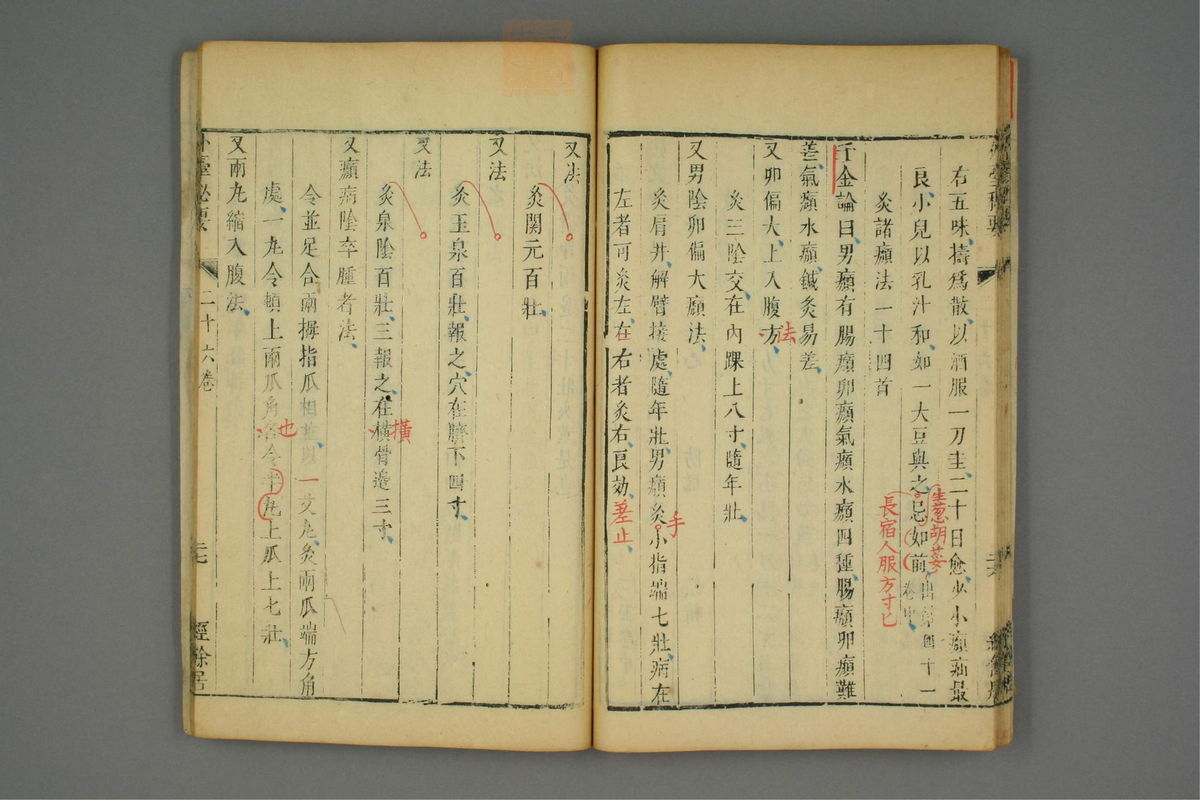 右五味擣為散以酒服一刀圭二十日愈少小㿗疝最
良小兒以乳汁和如一大豆與之忌如前出第四十一卷中
生葱胡荽
長宿人服方寸匕
灸諸㿗法一十四首
千金論曰男㿗有腸㿗卵㿗氣㿗水㿗四種腸㿗卵㿗難
差氣㿗水㿗鍼灸易差
又卵偏大上入腹方
法
灸三陰交在內踝上八寸隨年壯
又男陰卵偏大㿗法
灸肩井解臂接處隨年壯男㿗灸小指端七壯病在
手
左者可灸左在右者灸右良効
差止
又法
灸關元百壯
又法
灸玉泉百壯報之穴在臍下四寸
又法
灸泉陰百壯三報之在橫骨邉三寸
橫
又㿗病陰卒腫者法
令並足合兩拇指爪相並以一艾丸灸兩爪端方角
處一丸令頓上兩爪角各令半丸上爪上七壯
也
又兩丸縮入腹法
外臺秘要
二十六卷
經餘居